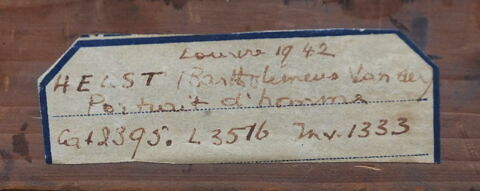 Louvre 1942
HELST (Bartholemeus Van der)
Portrait d'homme
Cat 2395. L 3516 Inv. 1333